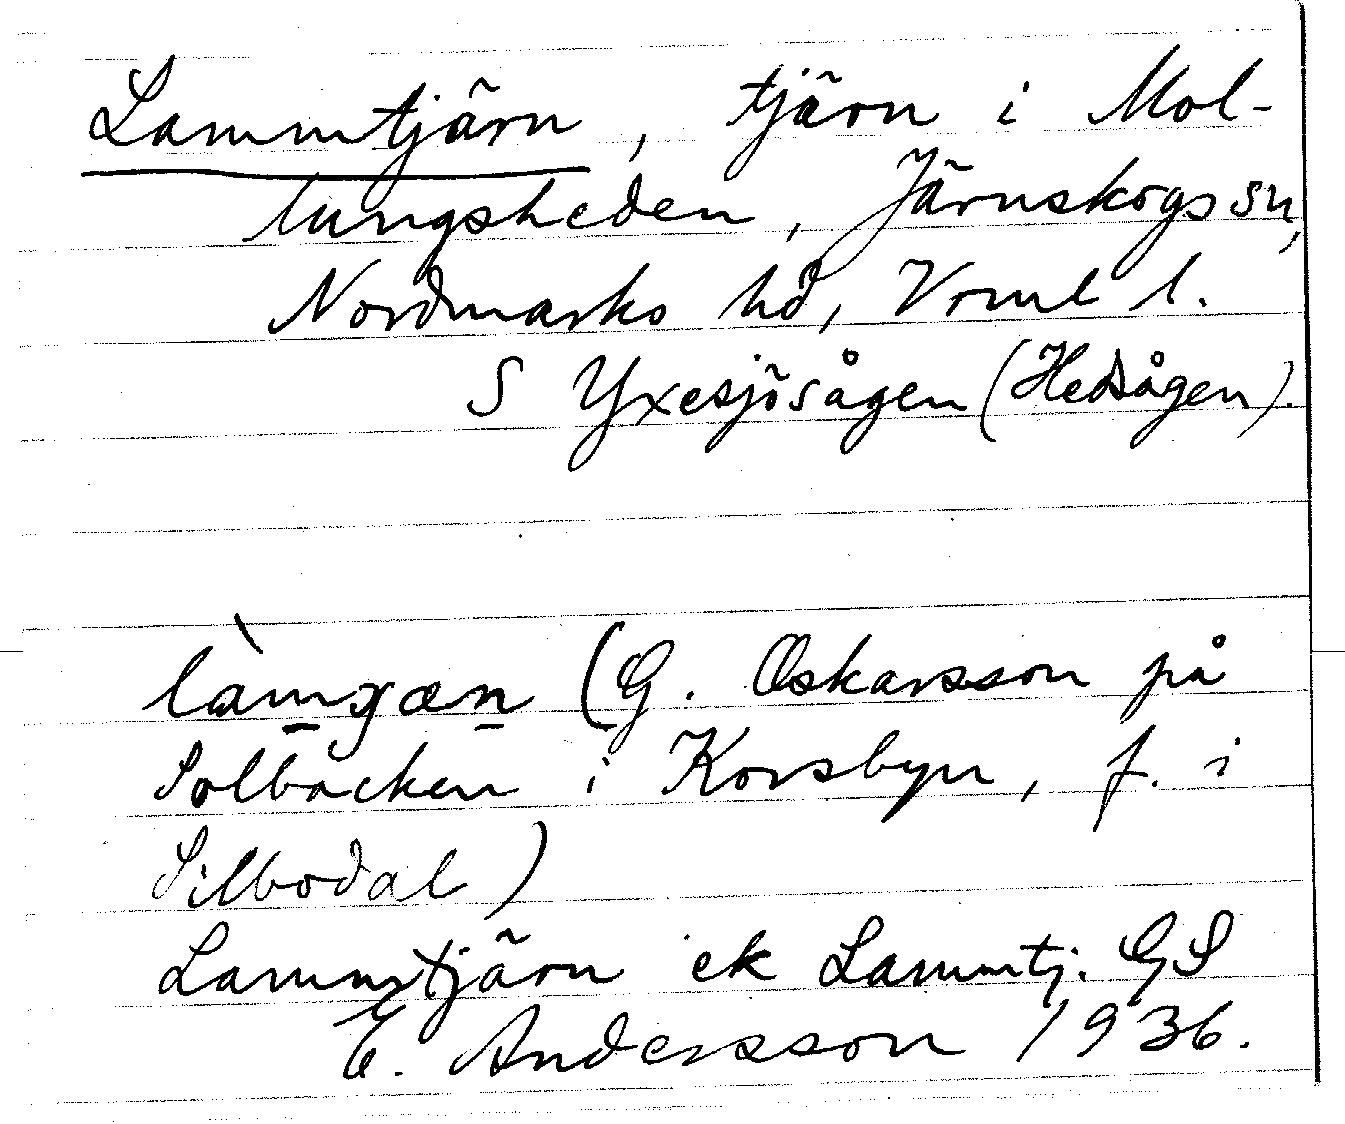 Lammtjärn, tjärn i Mol-
lungsheden, Järnskogs sn,
Nordmarks hd, Vrml l.
S Yxesjösågen (Hedsågen).
làmχæn (G. Oskarsson på
Solbacken i Korsbyn, f. i
Silbodal)
Lammtjärn ek Lammtj. GS
E. Andersson 1936.